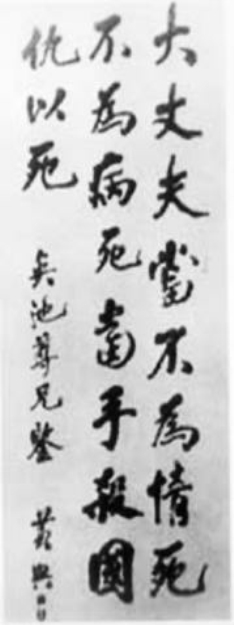 大丈夫當不為情死
不為病死當手殺國
仇以死
池尊兄鑒 黃興